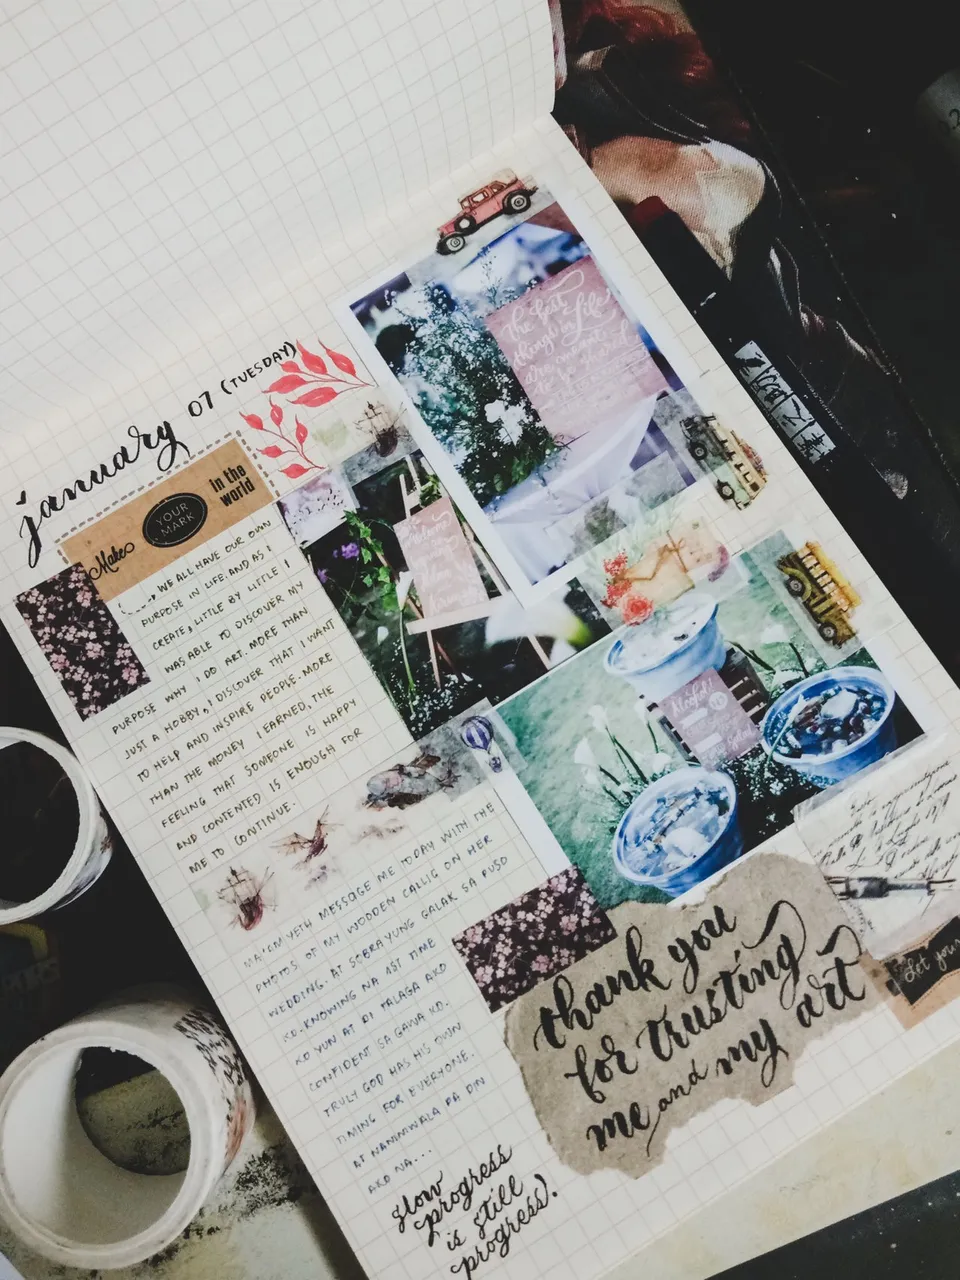 january 07 (TUESDAY)
Make
YOUR
MARK
in the
world
WE ALL HAVE OUR OWN
PURPOSE IN LIFE. AND AS I
CREATE, LITTLE BY LITTLE I
WAS ABLE TO DISCOVER MY
PURPOSE WHY I DO ART. MORE THAN
JUST A HOBBY, I DISCOVER THAT I WANT
TO HELP AND INSPIRE PEOPLE. MORE
THAN THE MONEY I EARNED, THE
FEELING THAT SOMEONE IS HAPPY
AND CONTENTED IS ENOUGH FOR
ME TO CONTINUE.
MA'AM YETH MESSAGE ME TODAY WITH THE
PHOTOS OF MY WOODEN CALLIG ON HER
WEDDING. AT SOBRA YUNG GALAK SA PUSO
KO. KNOWING NA 1ST TIME
KO YUN AT DI TALAGA AKO
CONFIDENT SA GAWA KO.
TRULY GOD HAS HIS OWN
TIMING FOR EVERYONE.
AT NANINIWALA PA DIN
AKO NA...
slow
progress
is still
progress).
the best
things in life
are meant
to be shared
Welcome
Alcohol
thank you
for trusting
me and my art
Let your